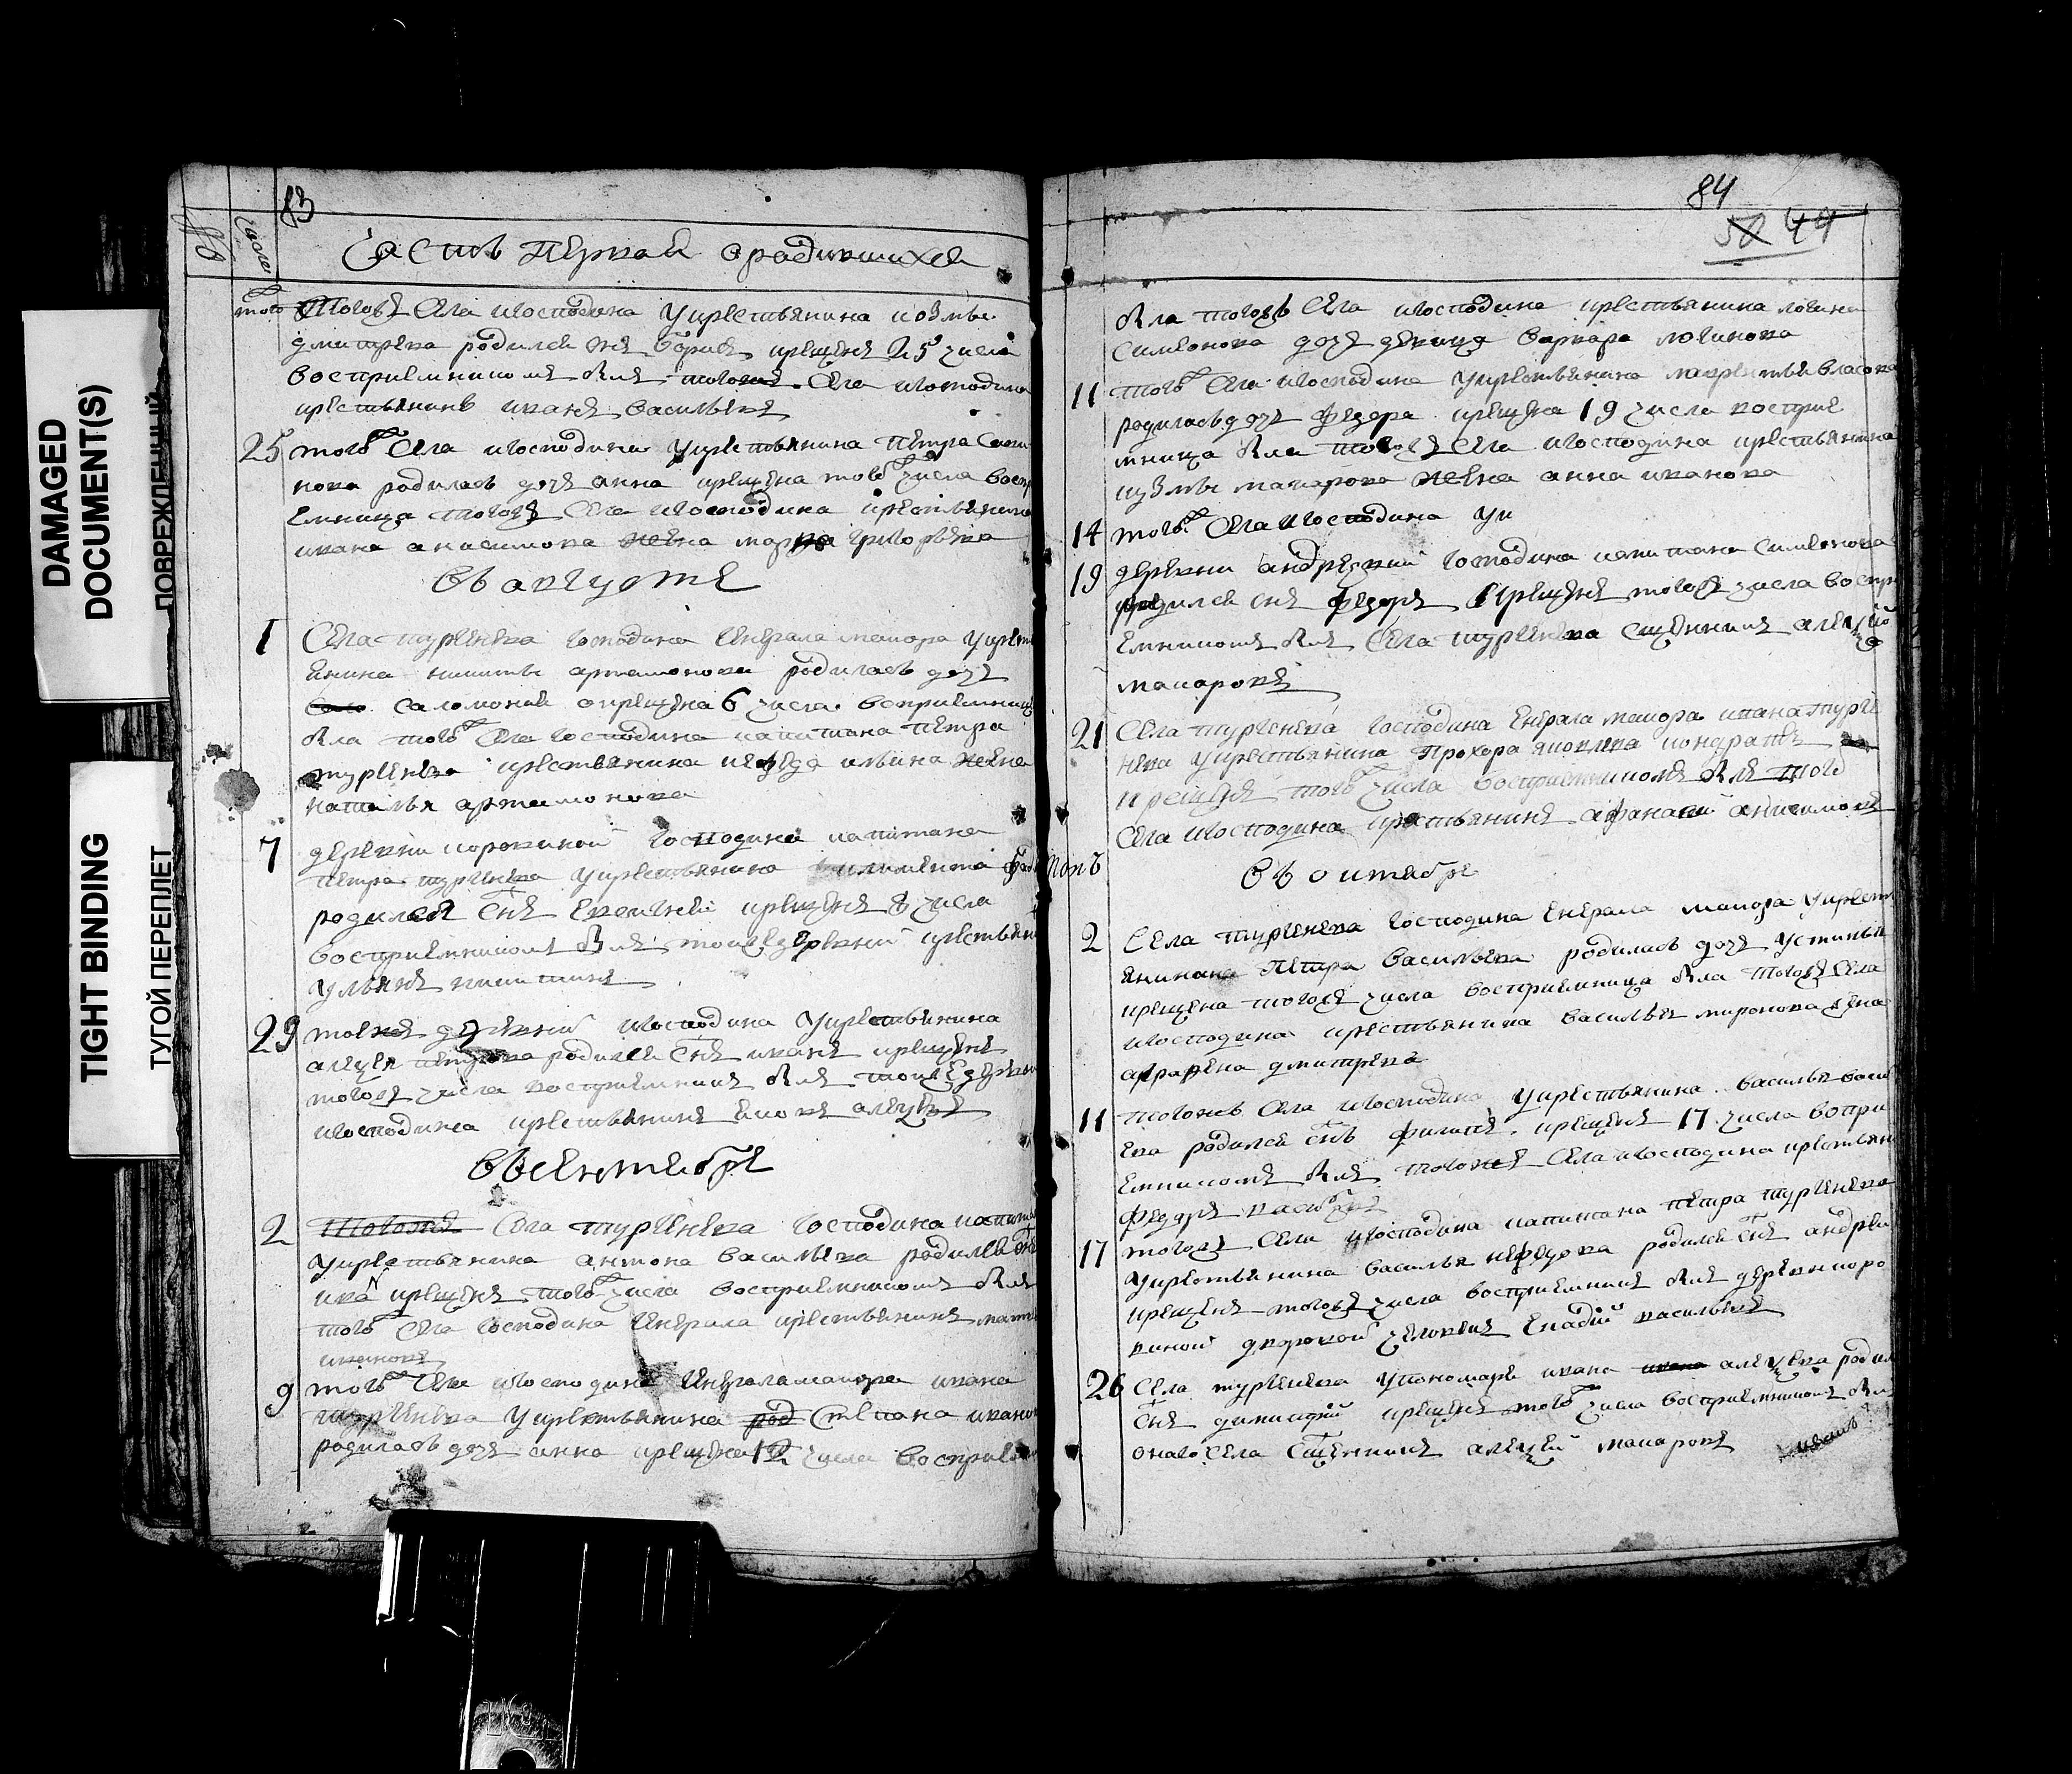 DAMAGED
DOCUMENT(S)
ПОВРЕЖДЕННЫЙ
TIGHT BINDING
ТУГОЙ ПЕРЕПЛЕТ
83
число
Часть первая о родившихся
тогожъ села игосподина укрестьянина козмы
дмитрева родился снъ крещенъ 25 числа
восприемникомъ былъ тогожъ села игосподина
крестьянинъ иванъ васильевъ
25 тогож села игосподина укрестьянина петра
нова родилась дочь анна крещена тогож числа
емница тогожъ села игосподина
ивана анисимова жена григорьева
въ августе
1 Села тургенева господина енерала маиора
янина никиты артамонова родилась дочь
саломония окрещена 6 числа восприемница
была тогож села господина капитана петра
тургенева крестьянина нефеда ильина жена
наталья артамонова
7 деревни коровиной господина капитана
петра тургенева укрестьянина
родился снъ евгений крещенъ числа
восприемникомъ былъ тоижъ деревни
ульянъ никитинъ
29 тоежъ деревни игосподина укрестьянина
алексея петрова родился снъ иванъ крещенъ
тогожъ числа восприемникъ былъ тоижъ деревни
игосподина крестьянинъ алексеевъ
въ сентебре
2 тогожъ Села тургенева господина
укрестьянина антона васильева родился
иван крещенъ тогож числа восприемникомъ былъ
тогож села господина енерала крестьянинъ
ивановъ
9 тогож села игосподина енерала маиора ивана
тургенева укрестьянина род степана
родилась дочь анна крещена 12 числа
84
50 44
была тогожъ села игосподина крестьянина логина
симионова дочь девица варвара логинова
11 тогож села игосподина укрестьянина власова
родилась дочь федора крещена 19 числа восприе
мница была тогожъ села игосподина крестьянина
кузмы макарова жена анна иванова
14 тогож села игосподина ук
19 деревни андреевки господина капитана симионова
родился снъ федоръ крещенъ тогожъ числа
емникомъ былъ села тургенева сщенникъ алексей
макаровъ
21 Села тургенева господина енерала маиора ивана турге
нева укрестьянина прохора яковлева кондратъ
крещенъ тогож числа восприемникомъ былъ того
села игосподина крестьянинъ афанасей анисимовъ
попъ
въ октебре
2 Села тургенева господина енерала маиора
янинана петра васильева родилась дочь устинья
крещена тогожъ числа восприемница была тогожъ села
игосподина крестьянина василья миронова жена
аграфена дмитрева
11 тогожъ села игосподина укрестьянина василья
ева родился снъ филипъ крещенъ 17 числа воспри
емникомъ былъ тогожъ села игосподина
федоръ
17 тогожъ села игосподина капитана петра тургенева
укрестьянина василья нефедова родился снъ андреи
крещенъ тогожъ числа восприемникъ былъ деревни коро
виной дворовой человекъ генадий васильевъ
26 села тургенева упономаря ивана ивана алексеева
снъ крещенъ тогож числа восприемникомъ былъ
онаго села сщенникъ алексей макаровъ